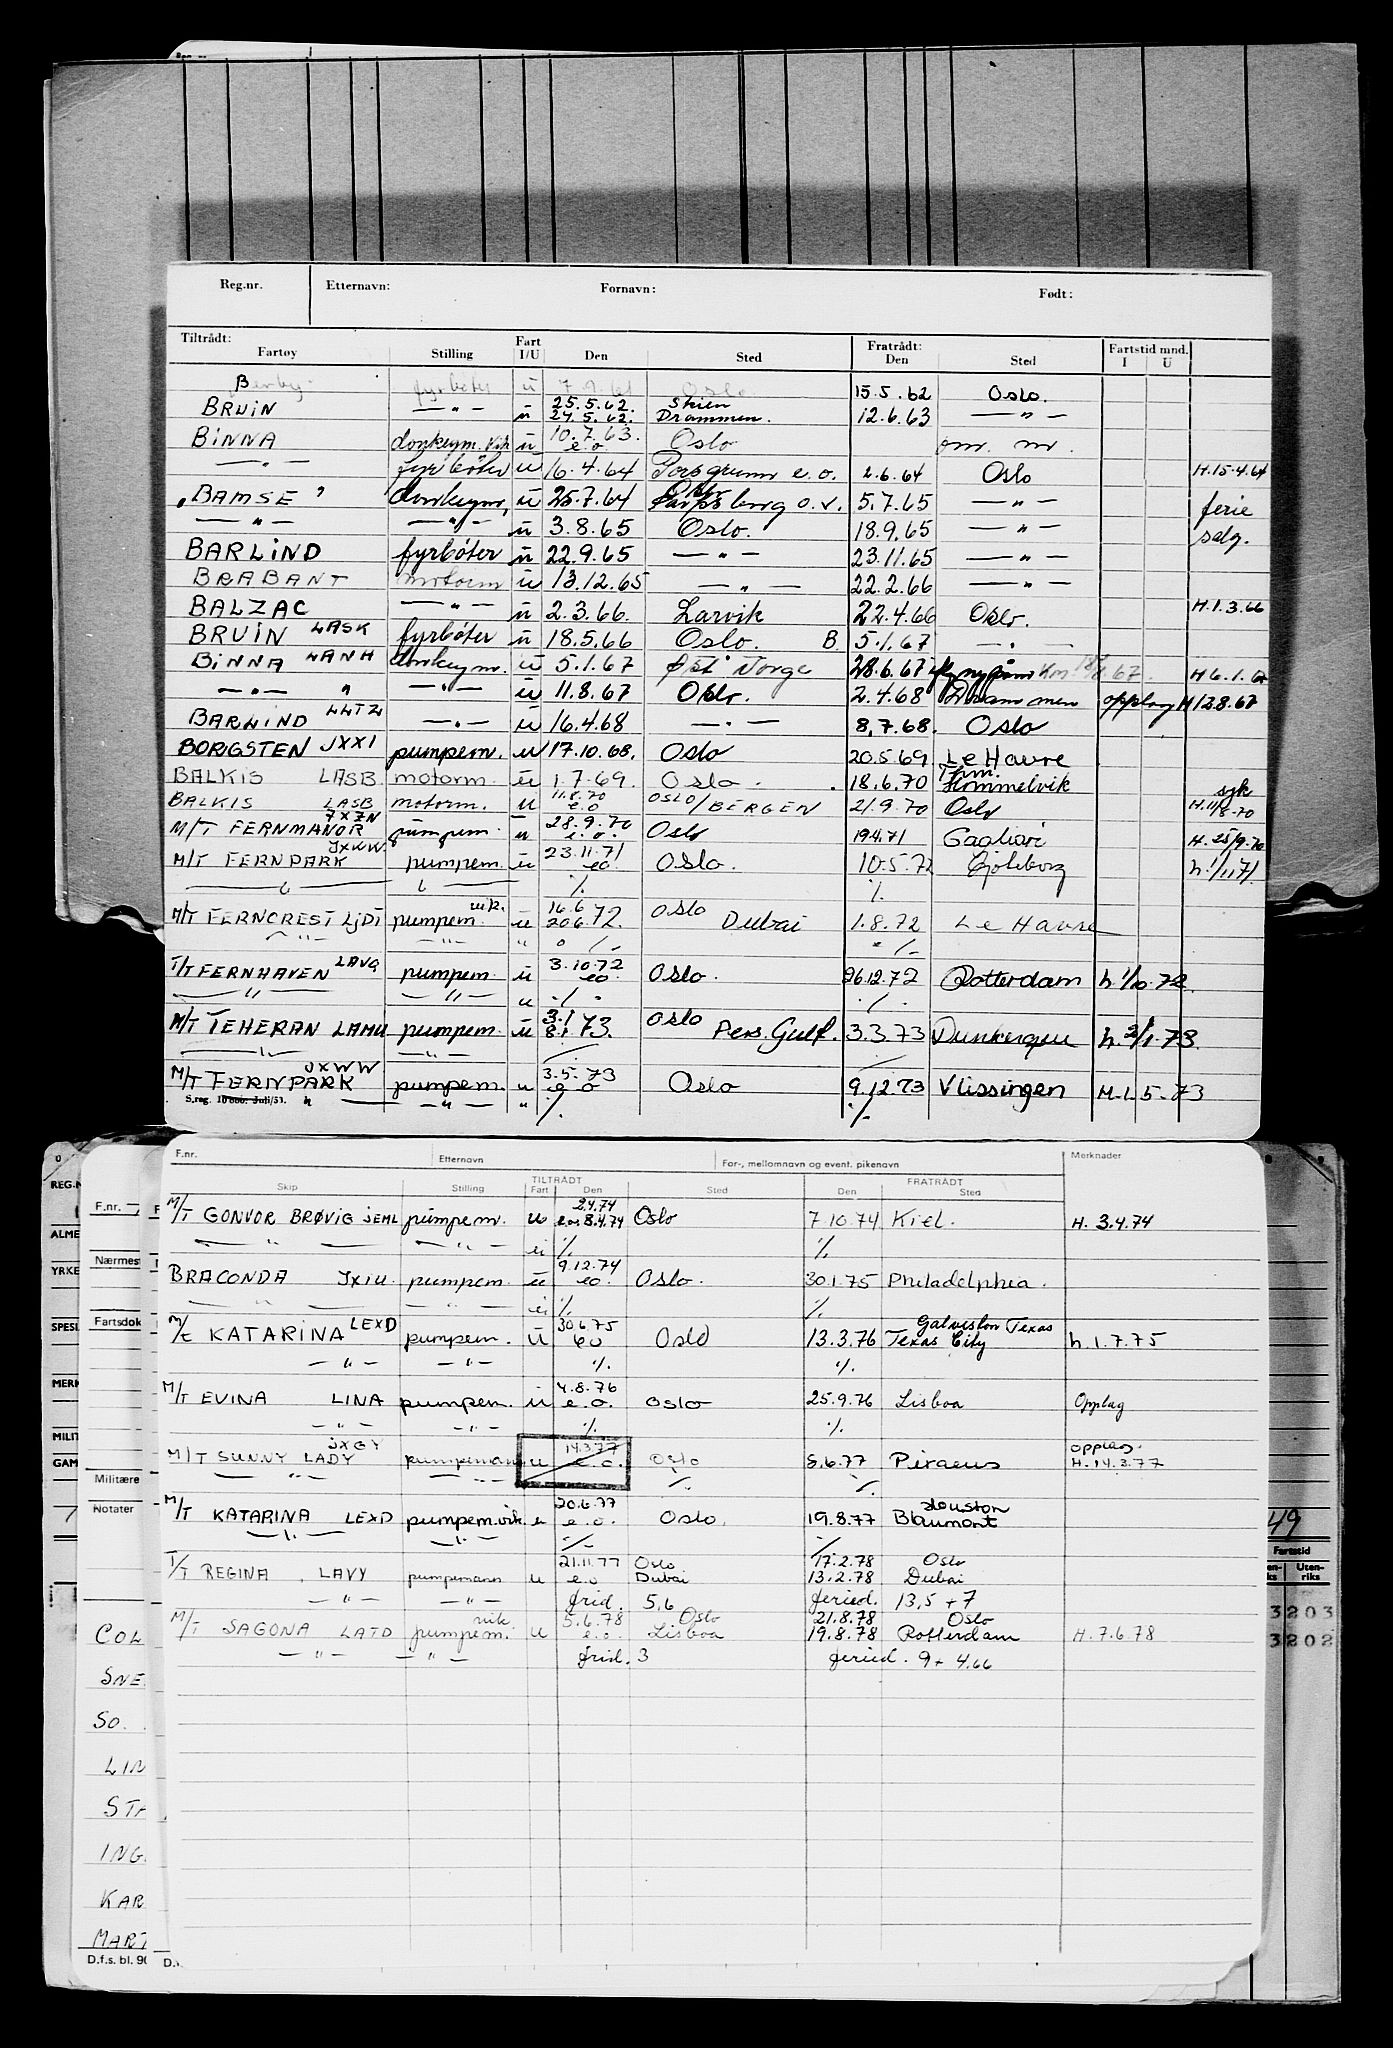 Reg.nr. Etternavn: Fornavn: Født:
Tiltrådt: Fart Fratrådt: Fartstid mnd.
Fartøy Stilling I/U Den Sted Den Sted I U
fyrbøter u 7.9.61 Oslo 15.5.62 Oslo.
BRUIN —〃— u 25.5.62. Skien
27.5.62. Drammen. 12.6.63 —〃—
BINNA donkeym. vik u 10.7.63. e.o. Oslo om. m.
—〃— fyrbøter u 16.4.64 Porsgrunn e.o. 2.6.64 Oslo H.15.4.64
"BAMSE" donkeym. u 25.7.64 Sarpsborg o.v. 5.7.65 —〃— ferie
—〃— —〃— u 3.8.65 Oslo. 18.9.65 —〃— salg.
BARLIND fyrbøter u 22.9.65 —〃— 23.11.65 —〃—
BRABANT motorm u 13.12.65 —〃— 22.2.66 —〃—
BALZAC —〃— u 2.3.66. Larvik 22.4.66 Oslo. H.1.3.66
BRUIN LASK fyrbøter u 18.5.66 Oslo. B. 5.1.67 —〃—
BINNA LANH donkeym. u 5.1.67 Øst Norge 28.6.67 H 6.1.67
—〃— 〃 —〃— u 11.8.67 Oslo. 2.4.68 Drammen opplag H 12.8.67
BARLIND LLTZ —〃— u 16.4.68 —〃— 8.7.68. Oslo
BORIGSTEN JXXI pumpem. u 17.10.68. Oslo 20.5.69 Le Havre
BALKIS LASB motorm. u 1.7.69. Oslo. 18.6.70 Hommelvik syk
BALKIS LASB motorm. u 11.8.70 e.o OSLO/BERGEN 21.9.70 Oslo H.11/8-70
M/T FERNMANOR JXZN pumpem. u 28.9.70 e.o. Oslo 19.4.71 Cagliari H.25/9.70
M/T FERNPARK JXWW pumpem. u 23.11.71 eo. Oslo. 10.5.72 Gøteborg
—〃— 〃 — ·/. ·/.
M/T FERNCREST LJDI pumpem. vik. u 16.6 20.6.72. Oslo Dubai 1.8.72 Le Havre
—〃— —〃— 〃 ·/. ·/.
T/T FERNHAVEN LAVQ pumpem. u 3.10.72 eo. Oslo. 26.12.72 Rotterdam h.1/10.72.
—〃— —〃— u ·/. ·/.
M/T TEHERAN LAMU pumpem. u 3.1 8.1.73. Oslo Pers. Gulf. 3.3.73 Dunkerque h.2/1.73.
—〃— —〃— ·/. ·/.
M/T FERNPARK JXWW pumpem. u 3.5.73 e o Oslo 9.12.73 Vlissingen H.1.5-73
S.reg. 10 000. Juli/53. 〃 —〃— 〃 ·/. ·/.
F.nr. Etternavn For-, mellomnavn og event. pikenavn Merknader
TILTRÅDT FRATRÅDT
Skip Stilling Fart Den Sted Den Sted
M/T GONVOR BRØVIG JEML pumpem. u 2.4.74 e.o. 8.4.74 Oslo 7.10.74 Kiel. H. 3.4.74
—〃— —〃— u ·/. ·/.
BRACONDA JXIU. pumpem. u 9.12.74 eo. Oslo. 30.1.75 Philadelphia.
—〃— —〃— u ·/. ·/.
M/T KATARINA LEXD pumpem. u 30.6.75 eo Oslo 13.3.76 Galveston Texas
Texas City h.1.7.75
—〃— —〃— ·/. ·/.
M/T EVINA LINA pumpem. u 4.8.76 e.o. Oslo 25.9.76 Lisboa Opplag
—〃— —〃— ·/. ·/.
M/T SUNNY LADY JXGY pumpemann u 14.3.77 e.o. Oslo 5.6.77 Piraeus opplag. H.14.3.77
—〃— —〃— ·/. ·/.
M/T KATARINA LEXD pumpem.vik. u 20.6.77 e.o. Oslo. 19.8.77 Houston
Blaumont
—〃— —〃— ·/. ·/.
T/T REGINA, LAVY pumpemann u 21.11.77 Oslo 17.2.78 Oslo
e.o Dubai 13.2.78 Dubai
—〃— —〃— frid. 5,6 feried. 13,5 + 7
M/T SAGONA LATD pumpem. vik u 5.6.78 Oslo 21.8.78 Oslo
e.o. Lisboa 19.8.78 Rotterdam H.7.6.78
—〃— —〃— frid. 3 feried. 9+ 4.66
REG.N
ALME
YRKE
SPESI
MERK
MILIT
GAM
F.nr.
Nærmest
Fartsdok
Militære
Notater
COL
SNE.
SO.
LIN
STA
ING.
KAR
MART
D.f.s. bl. 90
49
Fartstid
Uten-
riks
3203
3202